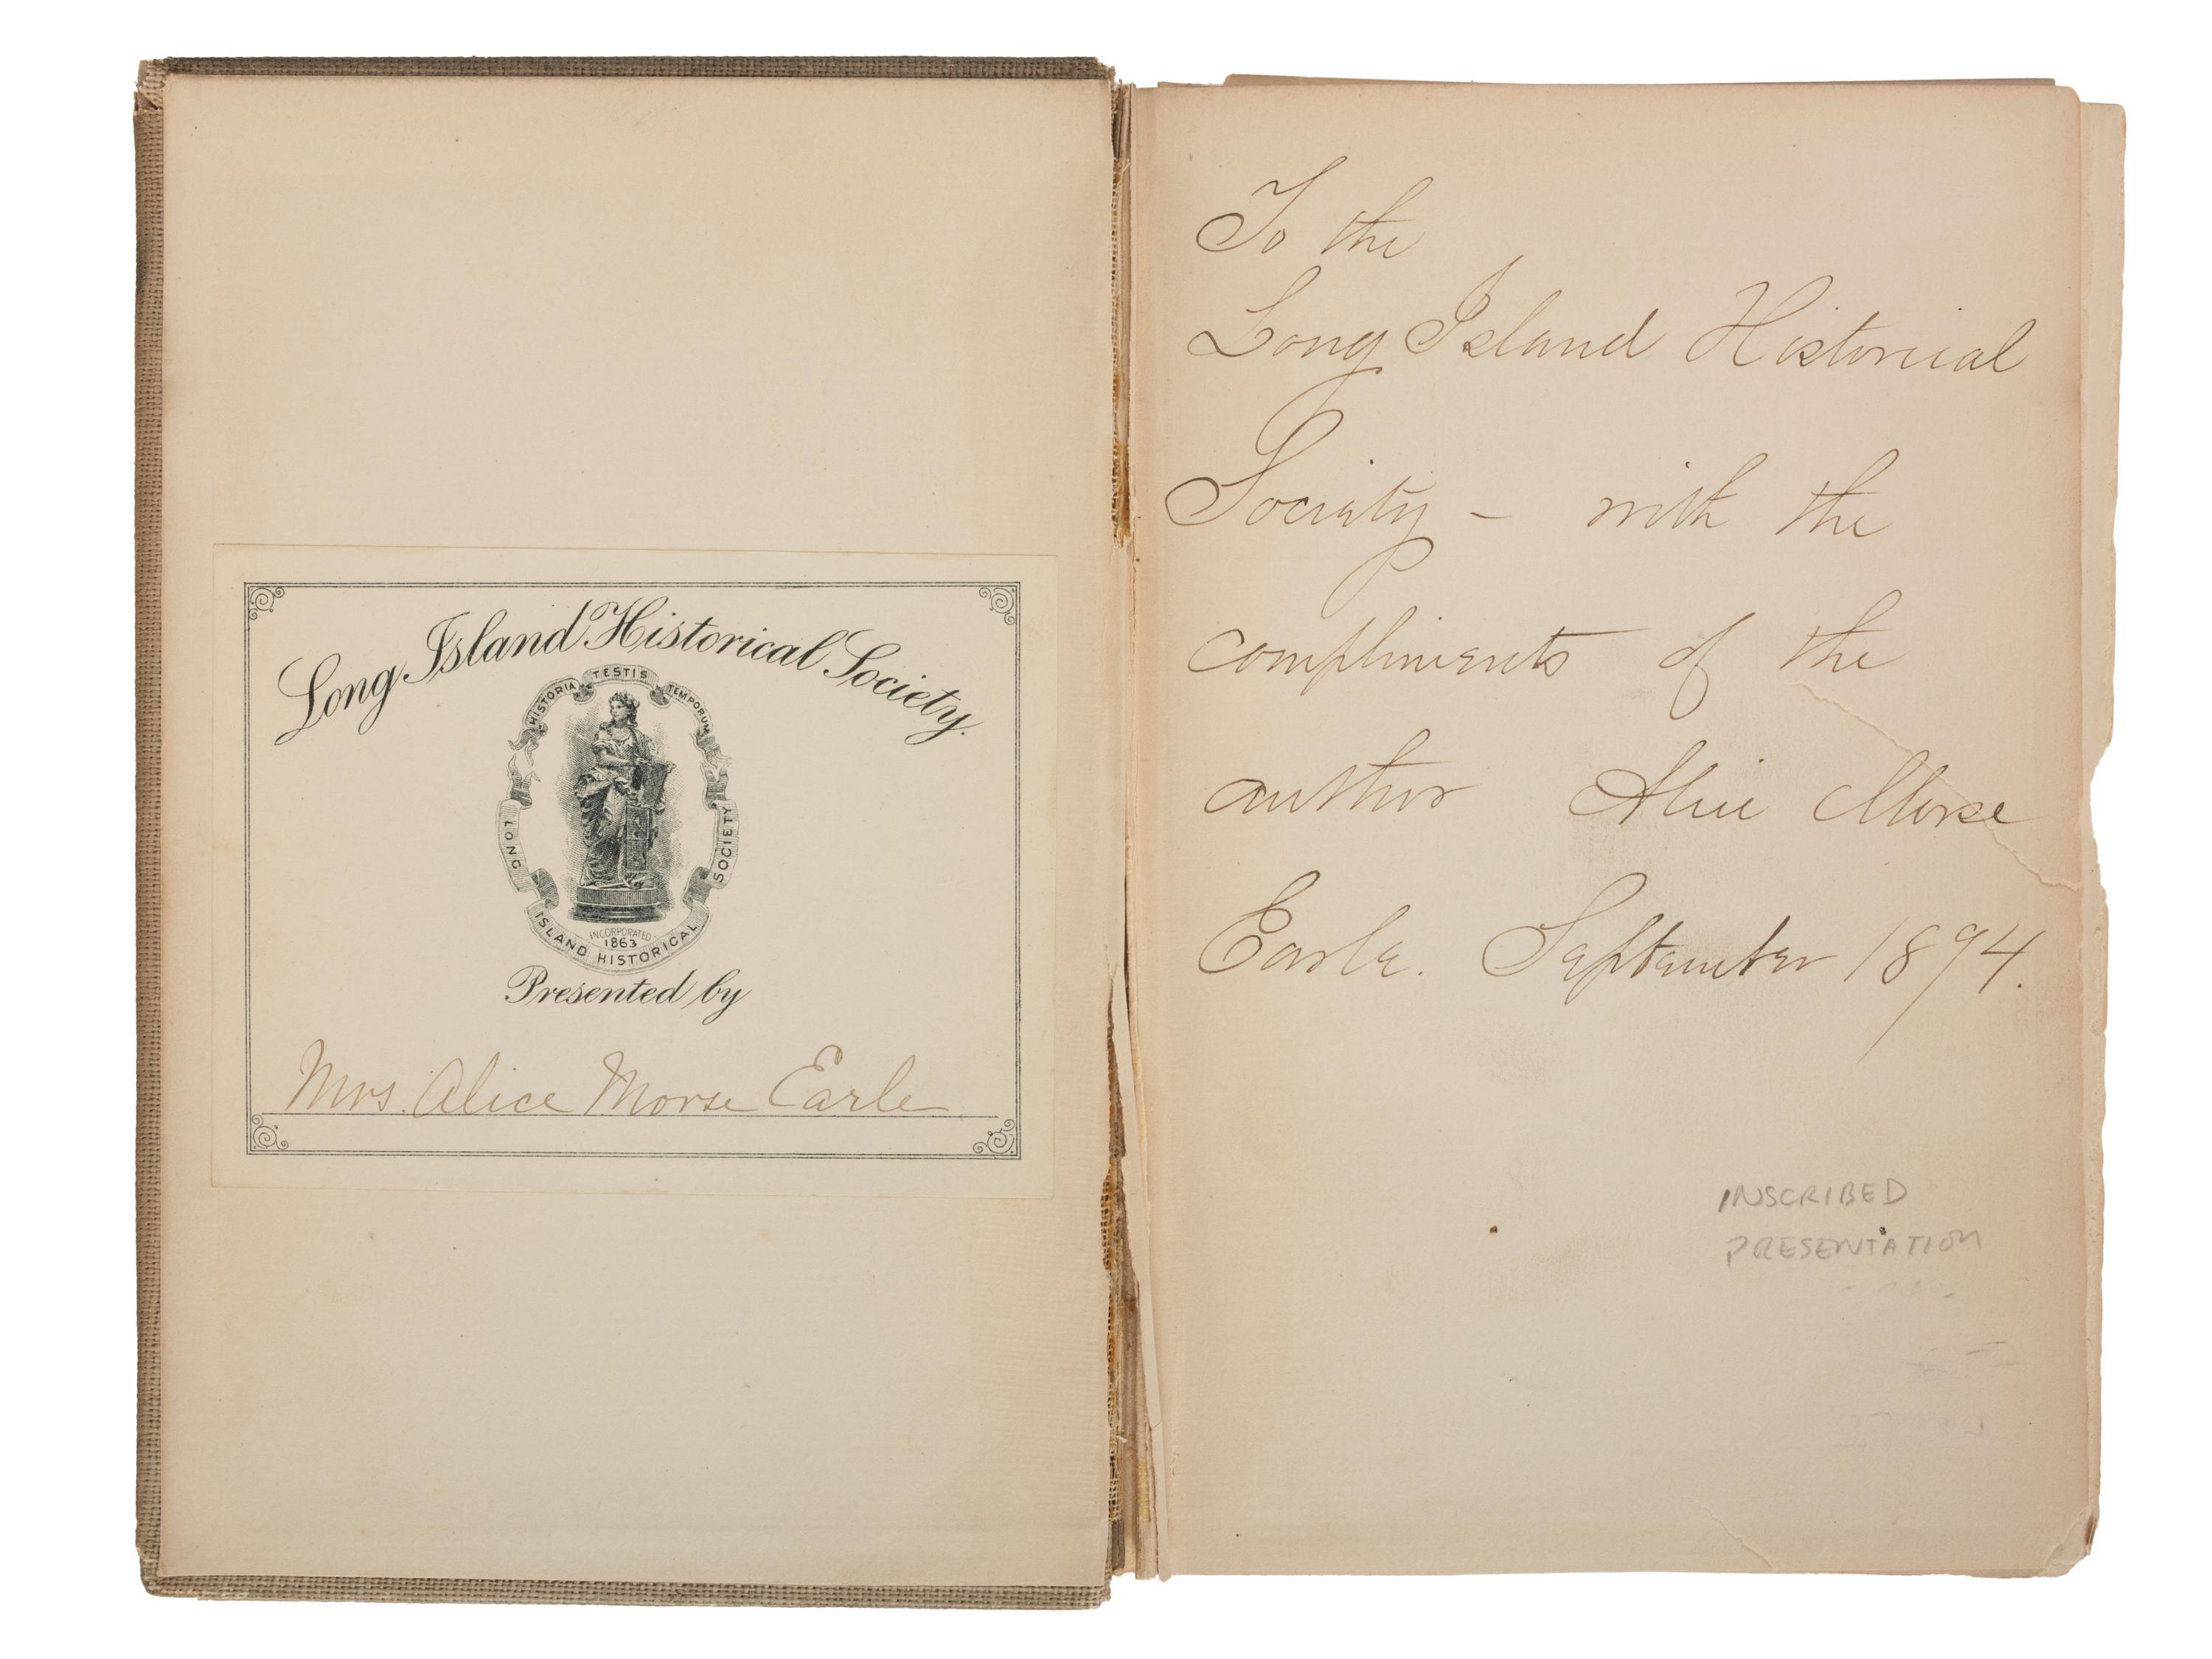 Long Island Historical Society.
HISTORIA TESTIS TEMPORUM
LONG ISLAND HISTORICAL SOCIETY
INCORPORATED
1863
Presented by
Mrs. Alice Morse Earle
To the
Long Island Historical
Society – with the
compliments of the
author Alice Morse
Earle. September 1894.
INSCRIBED
PRESENTATION